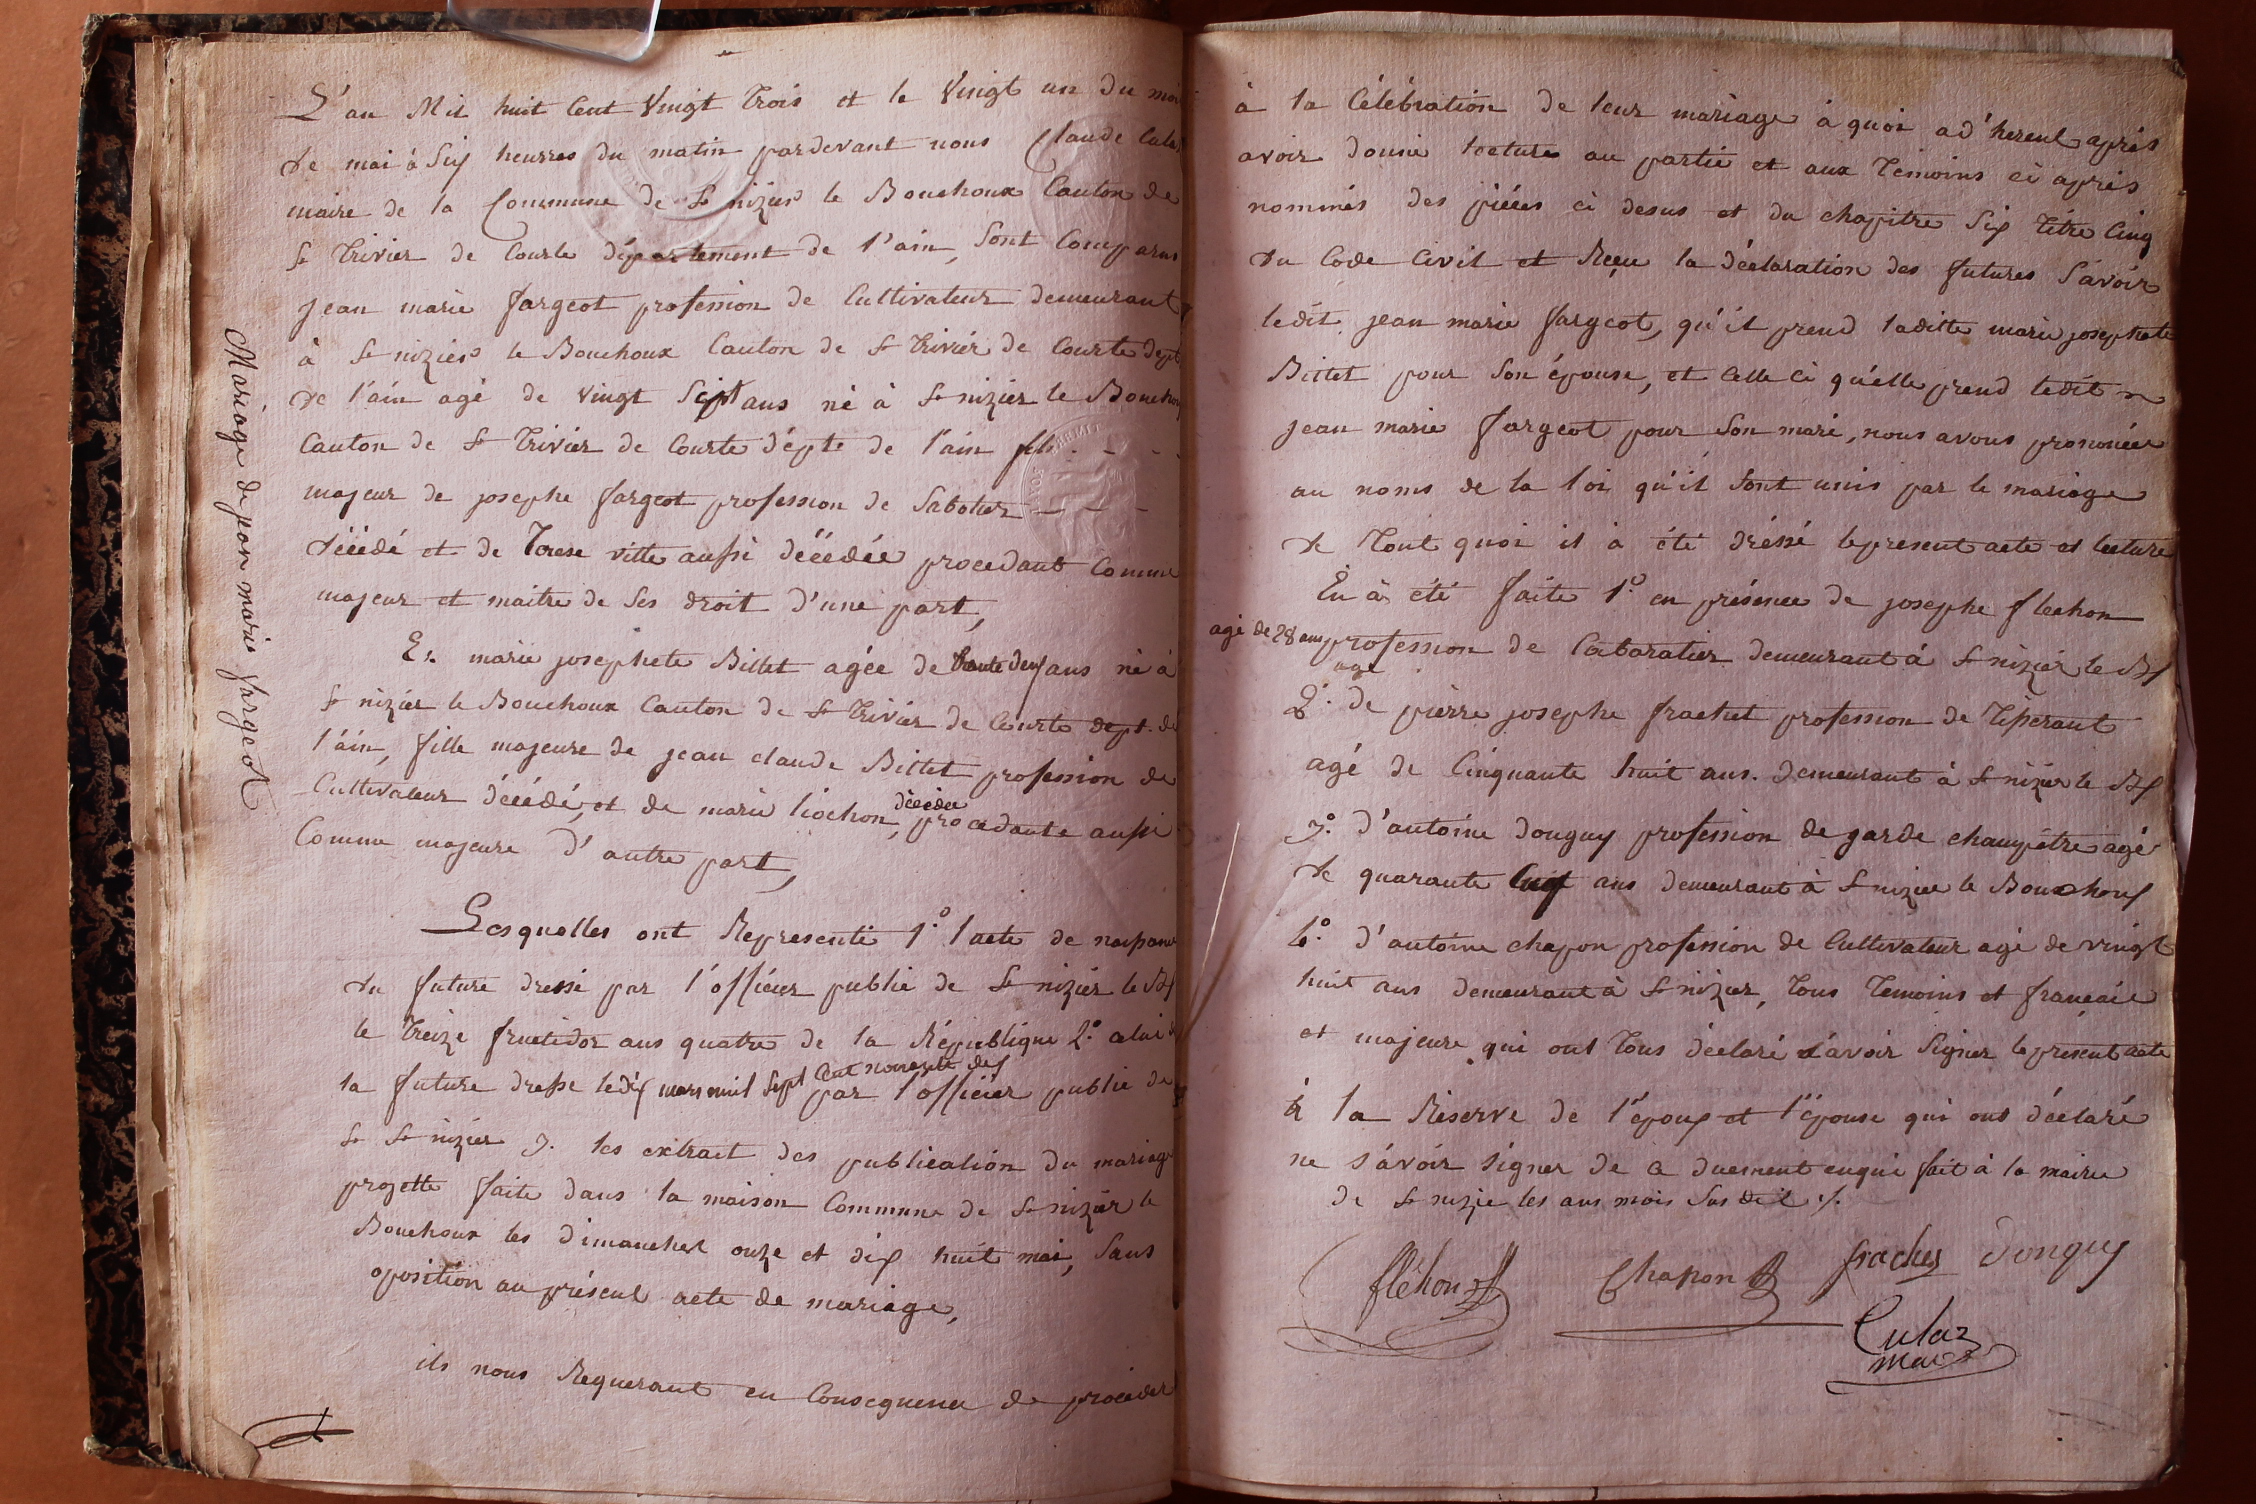 Mariage de jean marie fargeot
L'an Mil huit Cent Vingt trois et le Vingt un du moi
de mai à Six heurres du matin pardevant nous Claude Culas
maire de la Commune de St nizier le Bouchoux Canton de
St trivier de Courte département de l'ain, Sont Comparus
jean marie fargeot profession de Cultivateur demeurant
à St nizier le Bouchoux Canton de St trivier de Courte dept
de l'ain agé de vingt Sept ans né à St nizier le Bouchoux
Canton de St trivier de Courte dépte de l'ain fils - - -
majeur de josephe fargeot profession de Sabotier - - -
décédé et de Terese ville aussi décédée procedant Comme
majeur et maitre de Ses droit d'une part,
Et marie josephete Billet agée de trente deux ans né à
St nizier le Bouchoux Canton de St trivier de Courte dept. de
l'ain, fille majeure de jean claude Billet profession de
Cultivateur décédé, et de marie liochon, décédée procedante aussi
Comme majeure d'autre part,
Lesquelles ont Representé 1.° l'acte de naissance
du future dressé par l'officier public de St nizier le Bx
le treize fructidor ans quatre de la République 2.° celui de
la future dresse le dix mars mil Sept Cent nonente deux par l'officier public de
St nizier 3. les extrait des publication du mariage
projette faite dans la maison Commune de St nizier le
Bouchoux les dimanches onze et dix huit mai, Sans
oposition au présent acte de mariage,
ils nous Requerant en Consequence de proceder
à la Célébration de leur mariage à quoi ad'herent après
avoir donné lecture au partie et aux temoins ci après
nommés des pièces ci desus et du chapitre Six titre Cinq
du Code Civil et Reçu la déclaration des futures Savoir
ledit jean marie fargeot, qu'il prend laditte marie josephete
Billet pour Son épouse, et Celle Ci qu'elle prend ledit
jean marie fargeot pour Son mari, nous avons prononcée
au noms de la loi qu'il Sont unis par le mariage
de tout quoi il à été dréssé le present acte et lecture
En à été faite 1.° en présence de josephe flechon
agé de 28 ans profession de Cabaratier demeurant à St nizier le Bx
age
2.° de pierre josephe frachet profession de tiserant
agé de Cinquante huit ans. demeurant à St nizier le Bx
3.° d'antoine donguy profession de garde champêtre agé
de quarante ans demeurant à St nizier le Bouchoux
4.° d'antoine chapon profession de Cultivateur agé de vingt
huit ans demeurant à St nizier, tous temoins et français
et majeure qui ont tous déclaré Savoir Signer le présent acte
à la Réserve de l'époux et l'épouse qui ont déclaré
ne Sávoir Signer de Ce duement enquis fait à la mairie
de St nizie les ans mois Sus dit
fléhon
Chapon
frachet
Donguy
Culaz
maire